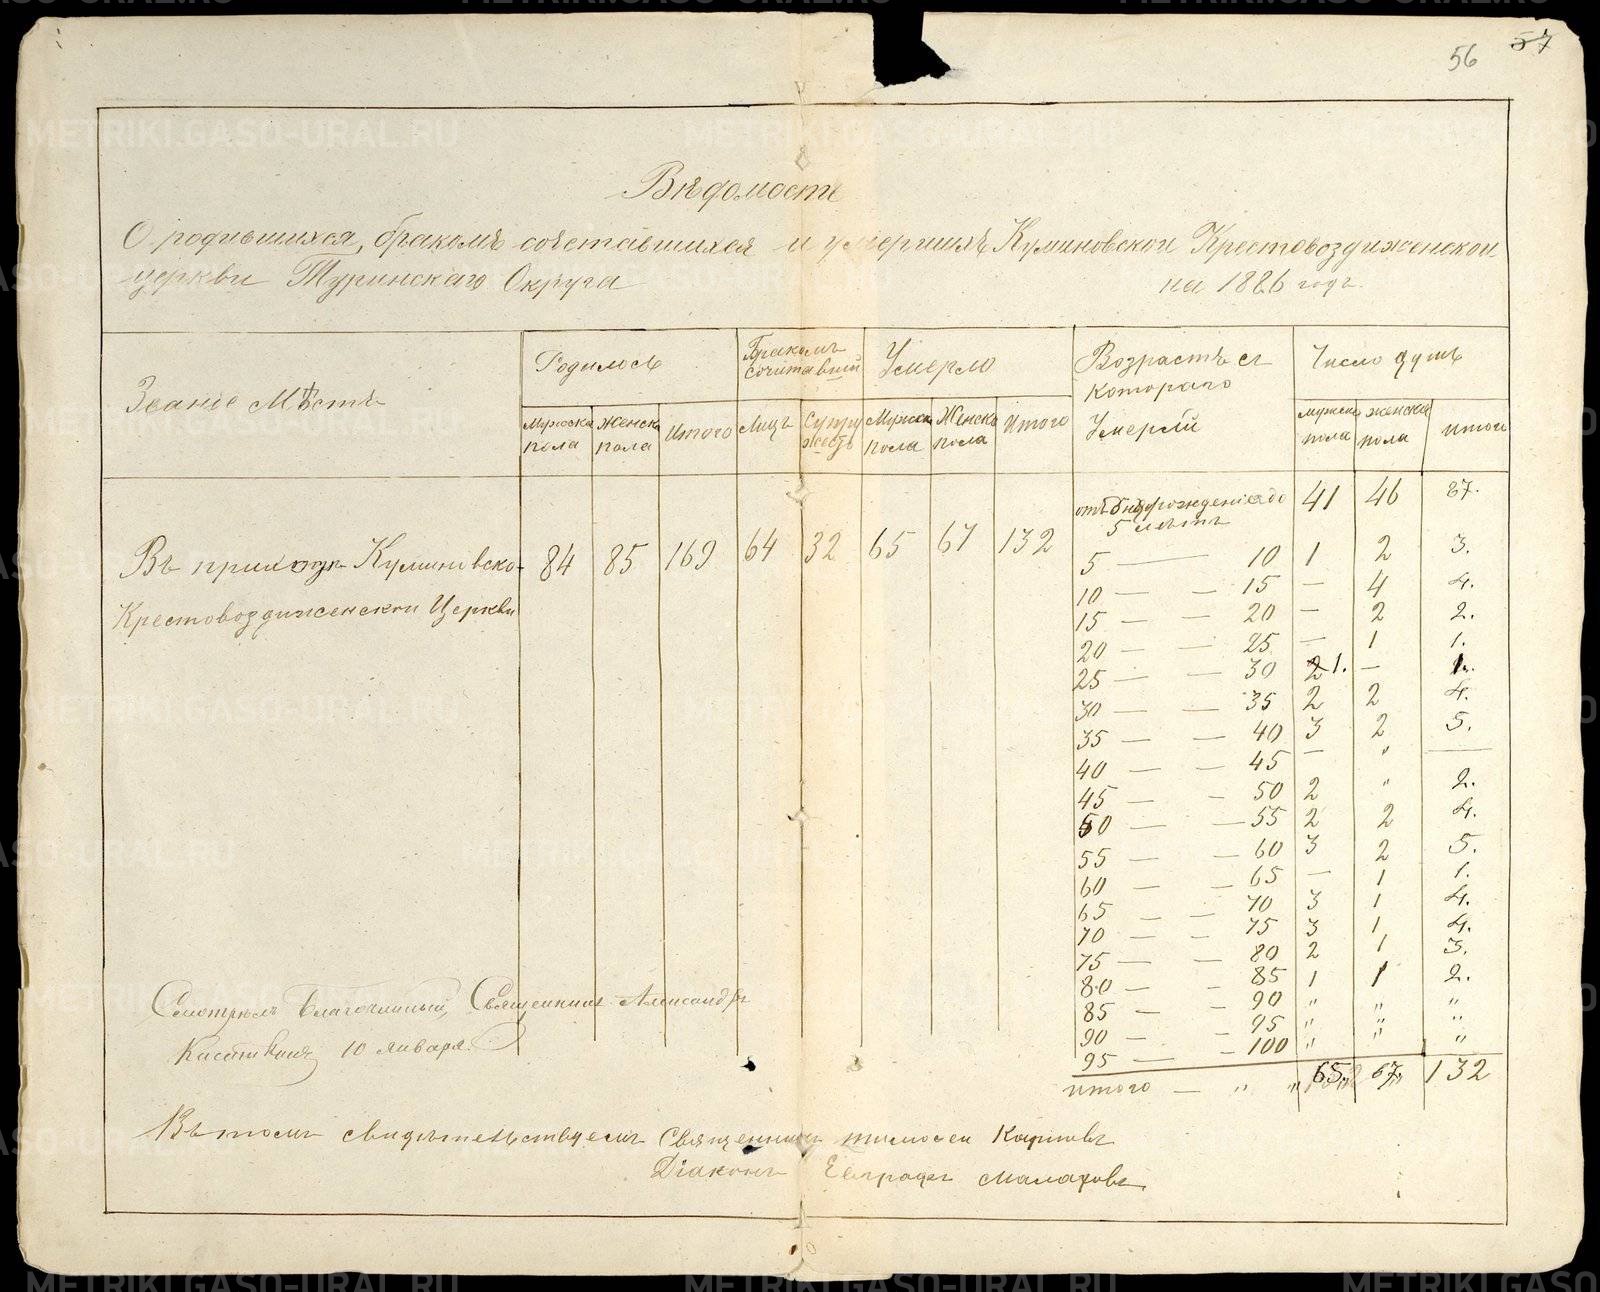 56 57
Вѣдомость
О родившихся, бракомъ сочетавшихся и умершихъ Куминовской Крестовоздвиженской
церкви Туринскаго Округа на 1886 годъ.
Званіе Мѣстъ
Родилось
Бракомъ сочитавший
Умерло
Возрастъ съ котораго Умерлй
Число душъ
Мужска пола
Женска пола
Итого
Лицъ
Супружествъ
Мужска пола
Женска пола
Итого
мужска пола
женска пола
итого
Въ приходѣ Куминовско- 84 85 169 64 32 65 67 132
Крестовоздвиженской Церкви
отъ рожденія до 5 лѣтъ 41 46 87.
5 — 10 1 2 3.
10 — — 15 — 4 4.
15 — — 20 — 2 2.
20 — — 25 — 1 1.
25 — — 30 2 1. — 1.
30 — — 35 2 2 4.
35 — — 40 3 2 5.
40 — — 45 — " —
45 — — 50 2 " 2.
50 — — 55 2 2 4.
55 — — 60 3 2 5.
60 — — 65 — 1 1.
65 — — 70 3 1 4.
70 — — 75 3 1 4.
75 — — 80 2 1 3.
80 — — 85 1 1 2.
85 — — 90 " " "
90 — — 95 " " "
95 — — 100 " " "
итого — " " 65 67 132
Смотрѣлъ Благочинный, Священникъ Александръ
10 января.
Въ томъ свидѣтельствуемъ Священникъ Тимофей Карповъ
Діаконъ Евграфъ Малаховъ
METRIKI.GASO-URAL.RU